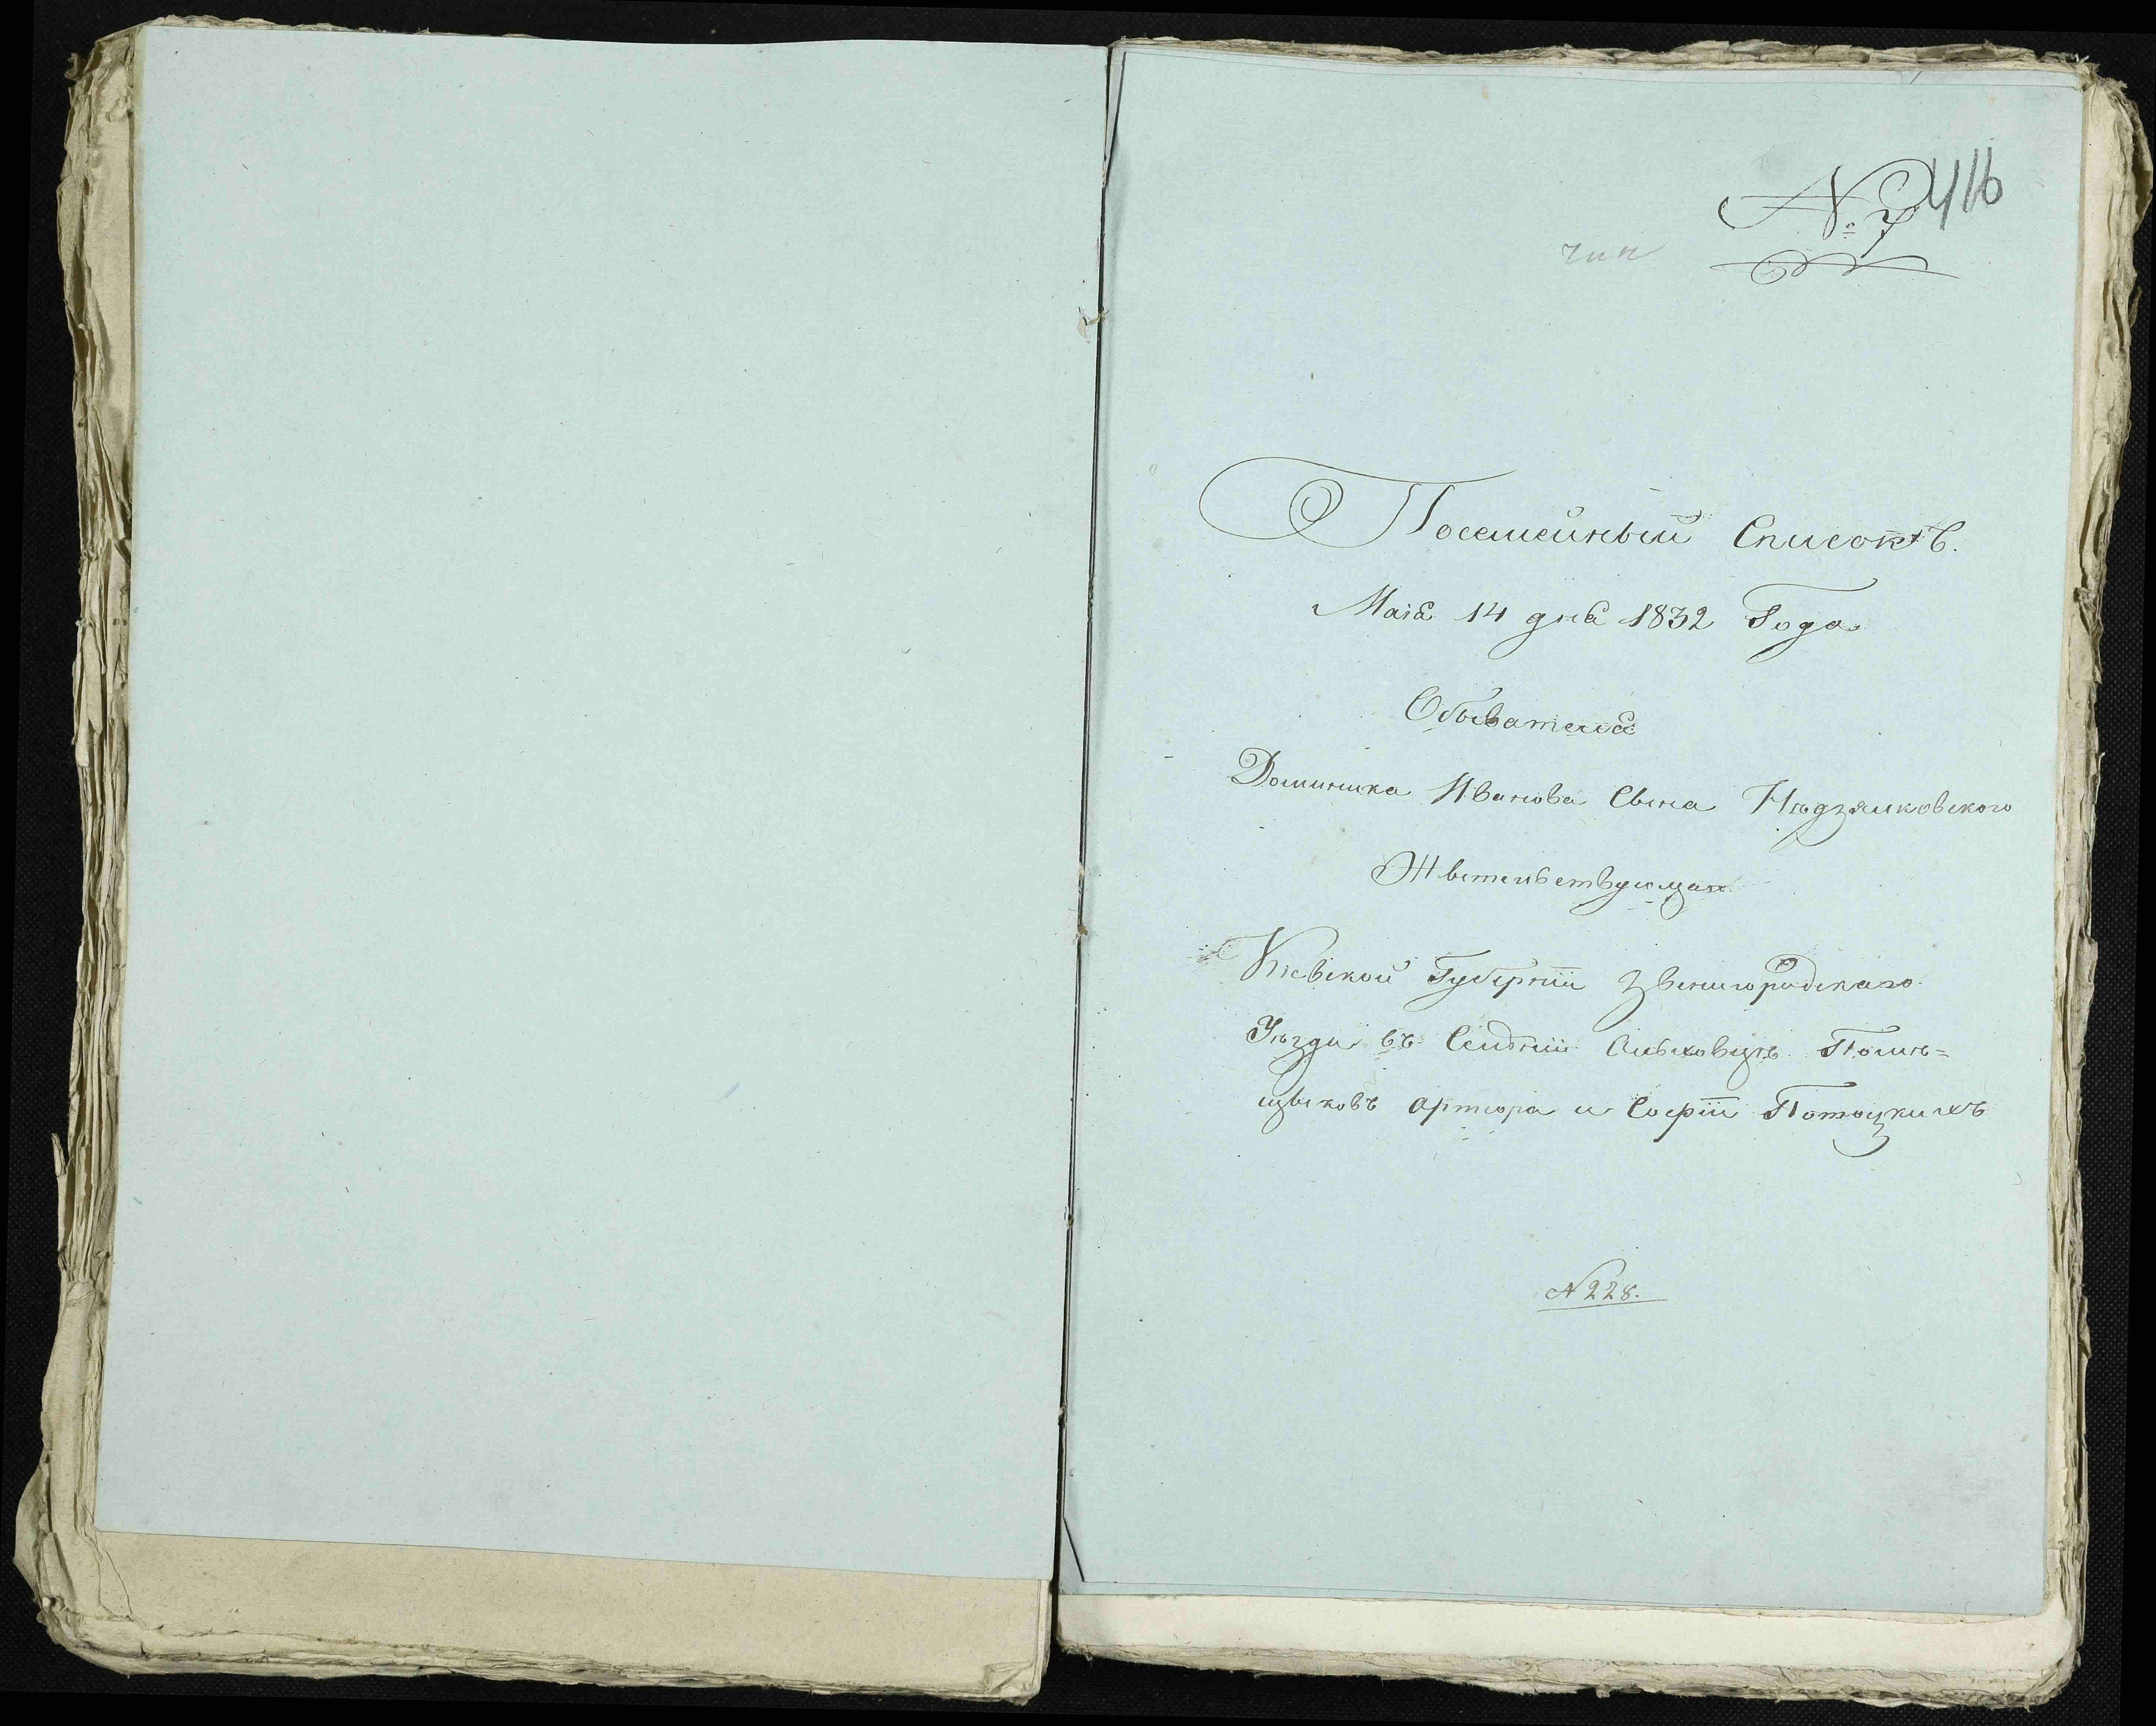 № 7
416
Посемейный Списокъ.
Маія 14 дня 1832 Года
Обывателя
Доминика Иванова Сына Нѣдзялковского
Жительствующаго
Кіевской Губерніи Звенигородскаго
Уѣзда въ Селеніи Помѣ=
щыковъ Артюра и Софіи Потоцкихъ
N 228.